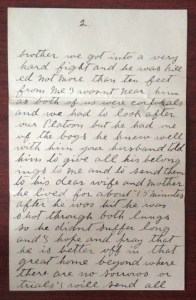 2
brother we got into a very
hard fight and he was kill
ed not more than ten feet
from me I wasnt near him
as both of us were corporals
and we had to look after
our Platoon but he had one
of the boys he knew well
with him your husband told
him to give all his belong
ings to me and to send them
to his dear wife and mother
he lived for about 15 minutes
after he was but he was
shot through both lungs
so he didnt suffer long
and I hope and pray that
he is better off in that
great home beyond where
there are no sorrows or
trials I will send all